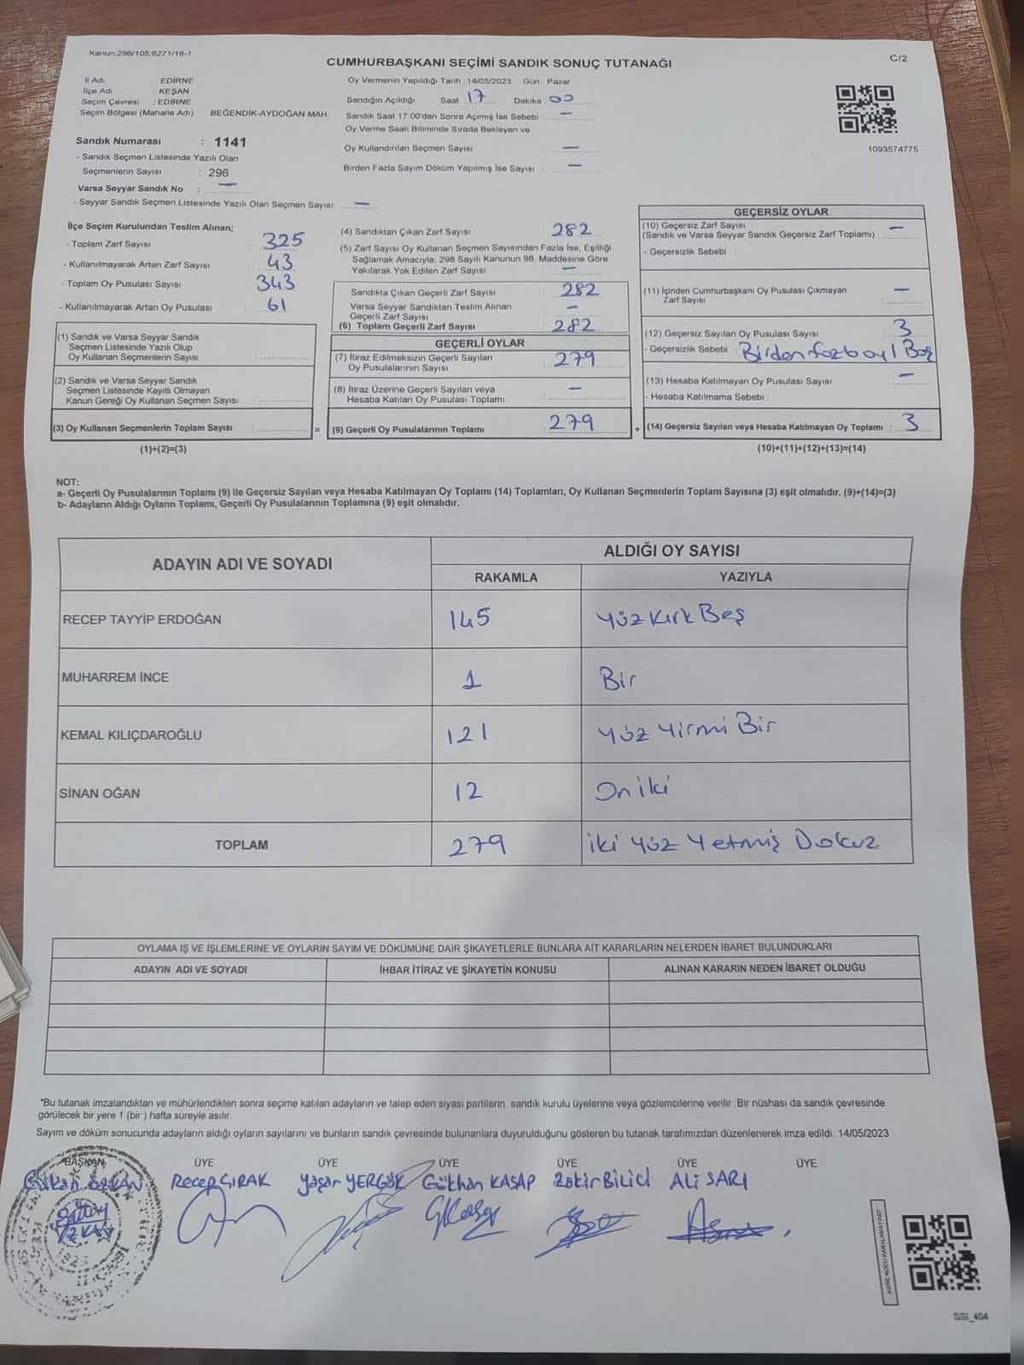 Kanun:298/105;6271/16-1
CUMHURBAŞKANI SEÇİMİ SANDIK SONUÇ TUTANAĞI
C/2
İl Adı : EDİRNE
İlçe Adı : KEŞAN
Seçim Çevresi : EDİRNE
Seçim Bölgesi (Mahalle Adı) BEĞENDİK-AYDOĞAN MAH.
Sandık Numarası : 1141
- Sandık Seçmen Listesinde Yazılı Olan
Seçmenlerin Sayısı : 296
Varsa Seyyar Sandık No : —
- Seyyar Sandık Seçmen Listesinde Yazılı Olan Seçmen Sayısı —
Oy Vermenin Yapıldığı Tarih :14/05/2023 Gün : Pazar
Sandığın Açıldığı Saat 17 Dakika 00
Sandık Saat 17:00'den Sonra Açılmış İse Sebebi —
Oy Verme Saati Bitiminde Sırada Bekleyen ve
Oy Kullandırılan Seçmen Sayısı —
Birden Fazla Sayım Döküm Yapılmış İse Sayısı —
1093574775
İlçe Seçim Kurulundan Teslim Alınan;
- Toplam Zarf Sayısı 325
- Kullanılmayarak Artan Zarf Sayısı 43
- Toplam Oy Pusulası Sayısı 343
- Kullanılmayarak Artan Oy Pusulası 61
(1) Sandık ve Varsa Seyyar Sandık
Seçmen Listesinde Yazılı Olup
Oy Kullanan Seçmenlerin Sayısı
(2) Sandık ve Varsa Seyyar Sandık
Seçmen Listesinde Kayıtlı Olmayan
Kanun Gereği Oy Kullanan Seçmen Sayısı
(3) Oy Kullanan Seçmenlerin Toplam Sayısı =
(1)+(2)=(3)
(4) Sandıktan Çıkan Zarf Sayısı 282
(5) Zarf Sayısı Oy Kullanan Seçmen Sayısından Fazla İse, Eşitliği
Sağlamak Amacıyla, 298 Sayılı Kanunun 98. Maddesine Göre
Yakılarak Yok Edilen Zarf Sayısı —
Sandıkta Çıkan Geçerli Zarf Sayısı 282
Varsa Seyyar Sandıktan Teslim Alınan
Geçerli Zarf Sayısı —
(6) Toplam Geçerli Zarf Sayısı 282
GEÇERLİ OYLAR
(7) İtiraz Edilmeksizin Geçerli Sayılan
Oy Pusulalarının Sayısı 279
(8) İtiraz Üzerine Geçerli Sayılan veya
Hesaba Katılan Oy Pusulası Toplamı —
(9) Geçerli Oy Pusulalarının Toplamı 279 +
GEÇERSİZ OYLAR
(10) Geçersiz Zarf Sayısı
(Sandık ve Varsa Seyyar Sandık Geçersiz Zarf Toplamı) : —
- Geçersizlik Sebebi :
(11) İçinden Cumhurbaşkanı Oy Pusulası Çıkmayan
Zarf Sayısı —
(12) Geçersiz Sayılan Oy Pusulası Sayısı 3
- Geçersizlik Sebebi Birden fazla oy / Boş
(13) Hesaba Katılmayan Oy Pusulası Sayısı —
- Hesaba Katılmama Sebebi :
(14) Geçersiz Sayılan veya Hesaba Katılmayan Oy Toplamı : 3
(10)+(11)+(12)+(13)=(14)
NOT:
a- Geçerli Oy Pusulalarının Toplamı (9) ile Geçersiz Sayılan veya Hesaba Katılmayan Oy Toplamı (14) Toplamları, Oy Kullanan Seçmenlerin Toplam Sayısına (3) eşit olmalıdır. (9)+(14)=(3)
b- Adayların Aldığı Oyların Toplamı, Geçerli Oy Pusulalarının Toplamına (9) eşit olmalıdır.
ADAYIN ADI VE SOYADI
ALDIĞI OY SAYISI
RAKAMLA YAZIYLA
RECEP TAYYİP ERDOĞAN 145 Yüz Kırk Beş
MUHARREM İNCE 1 Bir
KEMAL KILIÇDAROĞLU 121 Yüz Yirmi Bir
SİNAN OĞAN 12 On iki
TOPLAM 279 iki Yüz Yetmiş Dokuz
OYLAMA İŞ VE İŞLEMLERİNE VE OYLARIN SAYIM VE DÖKÜMÜNE DAİR ŞİKAYETLERLE BUNLARA AİT KARARLARIN NELERDEN İBARET BULUNDUKLARI
ADAYIN ADI VE SOYADI İHBAR İTİRAZ VE ŞİKAYETİN KONUSU ALINAN KARARIN NEDEN İBARET OLDUĞU
*Bu tutanak imzalandıktan ve mühürlendikten sonra seçime katılan adayların ve talep eden siyasi partilerin, sandık kurulu üyelerine veya gözlemcilerine verilir. Bir nüshası da sandık çevresinde
görülecek bir yere 1 (bir ) hafta süreyle asılır.
Sayım ve döküm sonucunda adayların aldığı oyların sayılarını ve bunların sandık çevresinde bulunanlara duyurulduğunu gösteren bu tutanak tarafımızdan düzenlenerek imza edildi. 14/05/2023
BAŞKAN ÜYE ÜYE ÜYE ÜYE ÜYE ÜYE
ÖZKAN Recep ÇIRAK Yaşar YERGÖK Gökhan KASAP Zakir Bilici Ali SARI
SSI_404